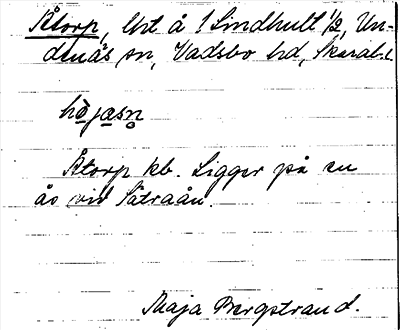 Åtorp, lht å 1 Lindhult 1/2, Un-
denäs sn, Vadsbo hd, Skarab.l.
Åtorp kb. Ligger på en
ås vid Sätraån.
Maja Bergstrand.